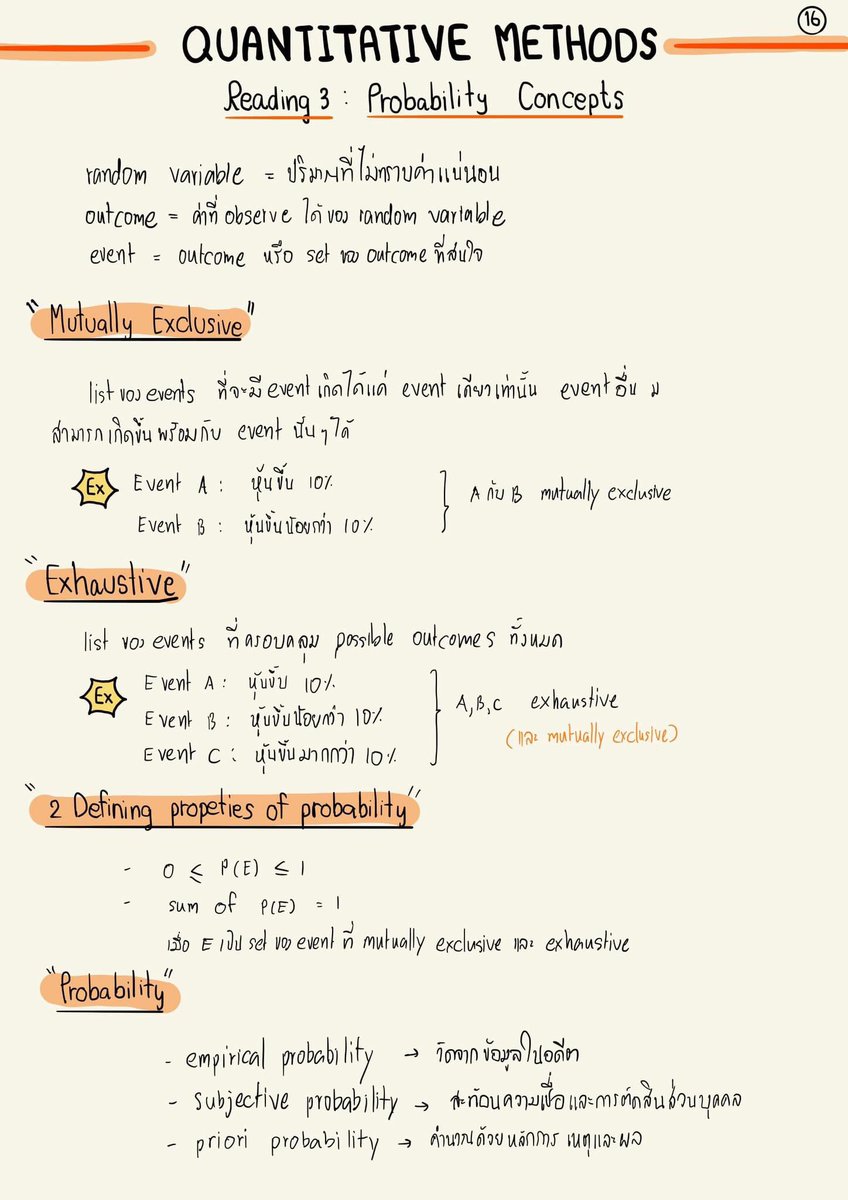 16
QUANTITATIVE METHODS
Reading 3 : Probability Concepts
random variable = ปริมาณที่ไม่ทราบค่าแน่นอน
outcome = ค่าที่ observe ได้ของ random variable
event = outcome หรือ set ของ outcome ที่สนใจ
"Mutually Exclusive"
list ของ events ที่จะมี event เกิดได้แค่ event เดียวเท่านั้น event อื่น ม
สามารถเกิดขึ้นพร้อมกับ event นั้นๆได้
Ex Event A : หุ้นขึ้น 10%
Event B : หุ้นขึ้นน้อยกว่า 10%
A กับ B mutually exclusive
"Exhaustive"
list ของ events ที่ครอบคลุม possible outcomes ทั้งหมด
Ex Event A : หุ้นขึ้น 10%
Event B : หุ้นขึ้นน้อยกว่า 10%
Event C : หุ้นขึ้นมากกว่า 10%
A, B, C exhaustive
(และ mutually exclusive)
"2 Defining propeties of probability"
- 0 ≤ P(E) ≤ 1
- sum of P(E) = 1
เมื่อ E เป็น set ของ event ที่ mutually exclusive และ exhaustive
"Probability"
- empirical probability → วัดจากข้อมูลในอดีต
- subjective probability → สะท้อนความเชื่อและการตัดสินส่วนบุคคล
- priori probability → คำนวณด้วยหลักการ เหตุและผล